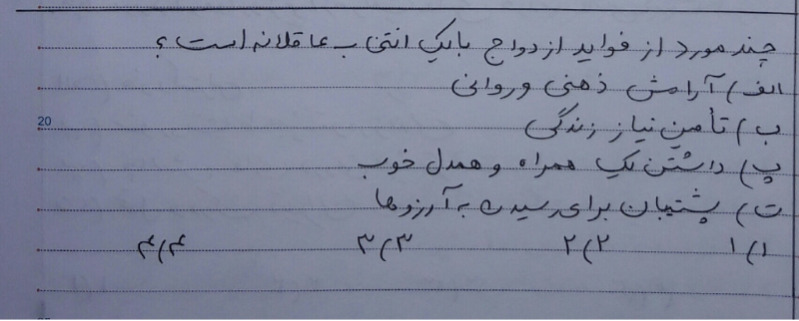 چند مورد از فواید ازدواج با یک انتخاب عاقلانه است؟
الف) آرامش ذهنی و روانی
20
ب) تأمین نیاز زندگی
پ) داشتن یک همراه و همدل خوب
ت) پشتیبان برای رسیدن به آرزوها
۱) ۱ ۲) ۲ ۳) ۳ ۴) ۴